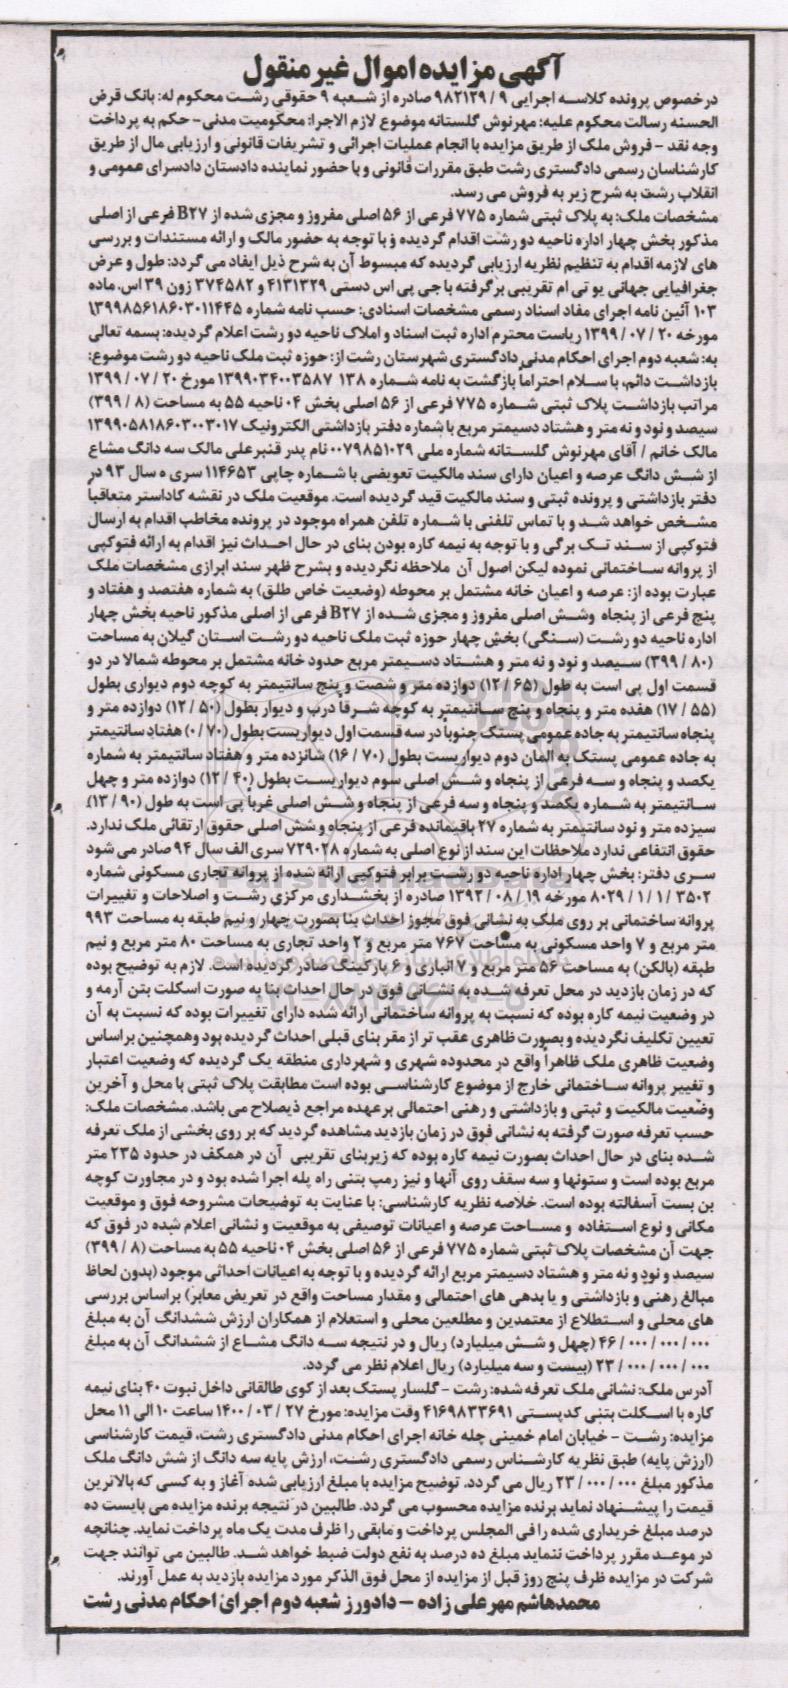 آگهی مزایده اموال غیر منقول
درخصوص پرونده کلاسه اجرایی ۹ / ۹۸۲۱۲۹ صادره از شعبه ۹ حقوقی رشت محکوم له: بانک قرض
الحسنه رسالت محکوم علیه: مهرنوش گلستانه موضوع لازم الاجرا: محکومیت مدنی- حکم به پرداخت
وجه نقد - فروش ملک از طریق مزایده با انجام عملیات اجرائی و تشریفات قانونی و ارزیابی مال از طریق
کارشناسان رسمی دادگستری رشت طبق مقررات قانونی و با حضور نماینده دادستان دادسرای عمومی و
انقلاب رشت به شرح زیر به فروش می رسد.
مشخصات ملک: به پلاک ثبتی شماره ۷۷۵ فرعی از ۵۶ اصلی مفروز و مجزی شده از B۲۷ فرعی از اصلی
مذکور بخش چهار اداره ناحیه دو رشت اقدام گردیده و با توجه به حضور مالک و ارائه مستندات و بررسی
های لازمه اقدام به تنظیم نظریه ارزیابی گردیده که مبسوط آن به شرح ذیل ایفاد می گردد: طول و عرض
جغرافیایی جهانی یو تی ام تقریبی برگرفته با جی پی اس دستی ۴۱۳۱۳۲۹ و ۳۷۴۵۸۲ زون ۳۹ اس. ماده
۱۰۳ آئین نامه اجرای مفاد اسناد رسمی مشخصات اسنادی: حسب نامه شماره ۱۳۹۹۸۵۶۱۸۶۰۳۰۱۱۴۴۵
مورخه ۲۰ / ۰۷ / ۱۳۹۹ ریاست محترم اداره ثبت اسناد و املاک ناحیه دو رشت اعلام گردیده: بسمه تعالی
به: شعبه دوم اجرای احکام مدنی دادگستری شهرستان رشت از: حوزه ثبت ملک ناحیه دو رشت موضوع:
بازداشت دائم، با سلام احتراماً بازگشت به نامه شماره ۱۳۸ ۱۳۹۹۰۳۴۰۰۳۵۸۷ مورخ ۲۰ / ۰۷ / ۱۳۹۹
مراتب بازداشت پلاک ثبتی شماره ۷۷۵ فرعی از ۵۶ اصلی بخش ۰۴ ناحیه ۵۵ به مساحت (۸ / ۳۹۹)
سیصد و نود و نه متر و هشتاد دسیمتر مربع با شماره دفتر بازداشتی الکترونیک ۱۳۹۹۰۵۸۱۸۶۰۳۰۰۳۰۱۷
مالک خانم / آقای مهرنوش گلستانه شماره ملی ۰۰۷۹۸۵۱۰۲۹ نام پدر قنبرعلی مالک سه دانگ مشاع
از شش دانگ عرصه و اعیان دارای سند مالکیت تعویضی با شماره چاپی ۱۱۴۶۵۳ سری ه سال ۹۳ در
دفتر بازداشتی و پرونده ثبتی و سند مالکیت قید گردیده است. موقعیت ملک در نقشه کاداستر متعاقباً
مشخص خواهد شد و با تماس تلفنی با شماره تلفن همراه موجود در پرونده مخاطب اقدام به ارسال
فتوکپی از سند تک برگی و با توجه به نیمه کاره بودن بنای در حال احداث نیز اقدام به ارائه فتوکپی
از پروانه ساختمانی نموده لیکن اصول آن ملاحظه نگردیده و بشرح ظهر سند ابرازی مشخصات ملک
عبارت بوده از: عرصه و اعیان خانه مشتمل بر محوطه (وضعیت خاص طلق) به شماره هفتصد و هفتاد و
پنج فرعی از پنجاه وشش اصلی مفروز و مجزی شده از B۲۷ فرعی از اصلی مذکور ناحیه بخش چهار
اداره ناحیه دو رشت (سنگی) بخش چهار حوزه ثبت ملک ناحیه دو رشت استان گیلان به مساحت
(۸۰ / ۳۹۹) سیصد و نود و نه متر و هشتاد دسیمتر مربع حدود خانه مشتمل بر محوطه شمالا در دو
قسمت اول پی است به طول (۶۵ / ۱۲) دوازده متر و شصت و پنج سانتیمتر به کوچه دوم دیواری بطول
(۵۵ / ۱۷) هفده متر و پنجاه و پنج سانتیمتر به کوچه شرقاً درب و دیوار بطول (۵۰ / ۱۲) دوازده متر و
پنجاه سانتیمتر به جاده عمومی پستک جنوباً در سه قسمت اول دیواریست بطول (۷۰ / ۰) هفتاد سانتیمتر
به جاده عمومی پستک به المان دوم دیواریست بطول (۷۰ / ۱۶) شانزده متر و هفتاد سانتیمتر به شماره
یکصد و پنجاه و سه فرعی از پنجاه و شش اصلی سوم دیواریست بطول (۴۰ / ۱۲) دوازده متر و چهل
سانتیمتر به شماره یکصد و پنجاه و سه فرعی از پنجاه و شش اصلی غرباً پی است به طول (۹۰ / ۱۳)
سیزده متر و نود سانتیمتر به شماره ۲۷ باقیمانده فرعی از پنجاه و شش اصلی حقوق ارتقائی ملک ندارد.
حقوق انتفاعی ندارد ملاحظات این سند از نوع اصلی به شماره ۷۲۹۰۲۸ سری الف سال ۹۴ صادر می شود
سری دفتر: بخش چهار اداره ناحیه دو رشت برابر فتوکپی ارائه شده از پروانه تجاری مسکونی شماره
۳۵۰۲ / ۱ / ۱ / ۸۰۲۹ مورخه ۱۹ / ۰۸ / ۱۳۹۲ صادره از بخشداری مرکزی رشت و اصلاحات و تغییرات
پروانه ساختمانی بر روی ملک به نشانی فوق مجوز احداث بنا بصورت چهار و نیم طبقه به مساحت ۹۹۳
متر مربع و ۷ واحد مسکونی به مساحت ۷۶۷ متر مربع و ۲ واحد تجاری به مساحت ۸۰ متر مربع و نیم
طبقه (بالکن) به مساحت ۵۶ متر مربع و ۷ انباری و ۶ پارکینگ صادر گردیده است. لازم به توضیح بوده
که در زمان بازدید در محل تعرفه شده به نشانی فوق در حال احداث بنا به صورت اسکلت بتن آرمه و
در وضعیت نیمه کاره بوده که نسبت به پروانه ساختمانی ارائه شده دارای تغییرات بوده که نسبت به آن
تعیین تکلیف نگردیده و بصورت ظاهری عقب تر از مقر بنای قبلی احداث گردیده بود وهمچنین براساس
وضعیت ظاهری ملک ظاهراً واقع در محدوده شهری و شهرداری منطقه یک گردیده که وضعیت اعتبار
و تغییر پروانه ساختمانی خارج از موضوع کارشناسی بوده است مطابقت پلاک ثبتی با محل و آخرین
وضعیت مالکیت و ثبتی و بازداشتی و رهنی احتمالی برعهده مراجع ذیصلاح می باشد. مشخصات ملک:
حسب تعرفه صورت گرفته به نشانی فوق در زمان بازدید مشاهده گردید که بر روی بخشی از ملک تعرفه
شده بنای در حال احداث بصورت نیمه کاره بوده که زیربنای تقریبی آن در همکف در حدود ۲۳۵ متر
مربع بوده است و ستونها و سه سقف روی آنها و نیز رمپ بتنی راه پله اجرا شده بود و در مجاورت کوچه
بن بست آسفالته بوده است. خلاصه نظریه کارشناسی: با عنایت به توضیحات مشروحه فوق و موقعیت
مکانی و نوع استفاده و مساحت عرصه و اعیانات توصیفی به موقعیت و نشانی اعلام شده در فوق که
جهت آن مشخصات پلاک ثبتی شماره ۷۷۵ فرعی از ۵۶ اصلی بخش ۰۴ ناحیه ۵۵ به مساحت (۸ / ۳۹۹)
سیصد و نود و نه متر و هشتاد دسیمتر مربع ارائه گردیده و با توجه به اعیانات احداثی موجود (بدون لحاظ
مبالغ رهنی و بازداشتی و یا بدهی های احتمالی و مقدار مساحت واقع در تعریض معابر) براساس بررسی
های محلی و استطلاع از معتمدین و مطلعین محلی و استعلام از همکاران ارزش ششدانگ آن به مبلغ
۰۰۰ / ۰۰۰ / ۰۰۰ / ۴۶ (چهل و شش میلیارد) ریال و در نتیجه سه دانگ مشاع از ششدانگ آن به مبلغ
۰۰۰ / ۰۰۰ / ۰۰۰ / ۲۳ (بیست و سه میلیارد) ریال اعلام نظر می گردد.
آدرس ملک: نشانی ملک تعرفه شده: رشت - گلسار پستک بعد از کوی طالقانی داخل نبوت ۴۰ بنای نیمه
کاره با اسکلت بتنی کدپستی ۴۱۶۹۸۳۳۶۹۱ وقت مزایده: مورخ ۲۷ / ۰۳ / ۱۴۰۰ ساعت ۱۰ الی ۱۱ محل
مزایده: رشت - خیابان امام خمینی چله خانه اجرای احکام مدنی دادگستری رشت، قیمت کارشناسی
(ارزش پایه) طبق نظریه کارشناس رسمی دادگستری رشت، ارزش پایه سه دانگ از شش دانگ ملک
مذکور مبلغ ۰۰۰ / ۰۰۰ / ۲۳ ریال می گردد. توضیح مزایده با مبلغ ارزیابی شده آغاز و به کسی که بالاترین
قیمت را پیشنهاد نماید برنده مزایده محسوب می گردد. طالبین در نتیجه برنده مزایده می بایست ده
درصد مبلغ خریداری شده را فی المجلس پرداخت و مابقی را ظرف مدت یک ماه پرداخت نماید. چنانچه
در موعد مقرر پرداخت ننماید مبلغ ده درصد به نفع دولت ضبط خواهد شد. طالبین می توانند جهت
شرکت در مزایده ظرف پنج روز قبل از مزایده از محل فوق الذکر مورد مزایده بازدید به عمل آورند.
محمدهاشم مهرعلی زاده - دادورز شعبه دوم اجرای احکام مدنی رشت